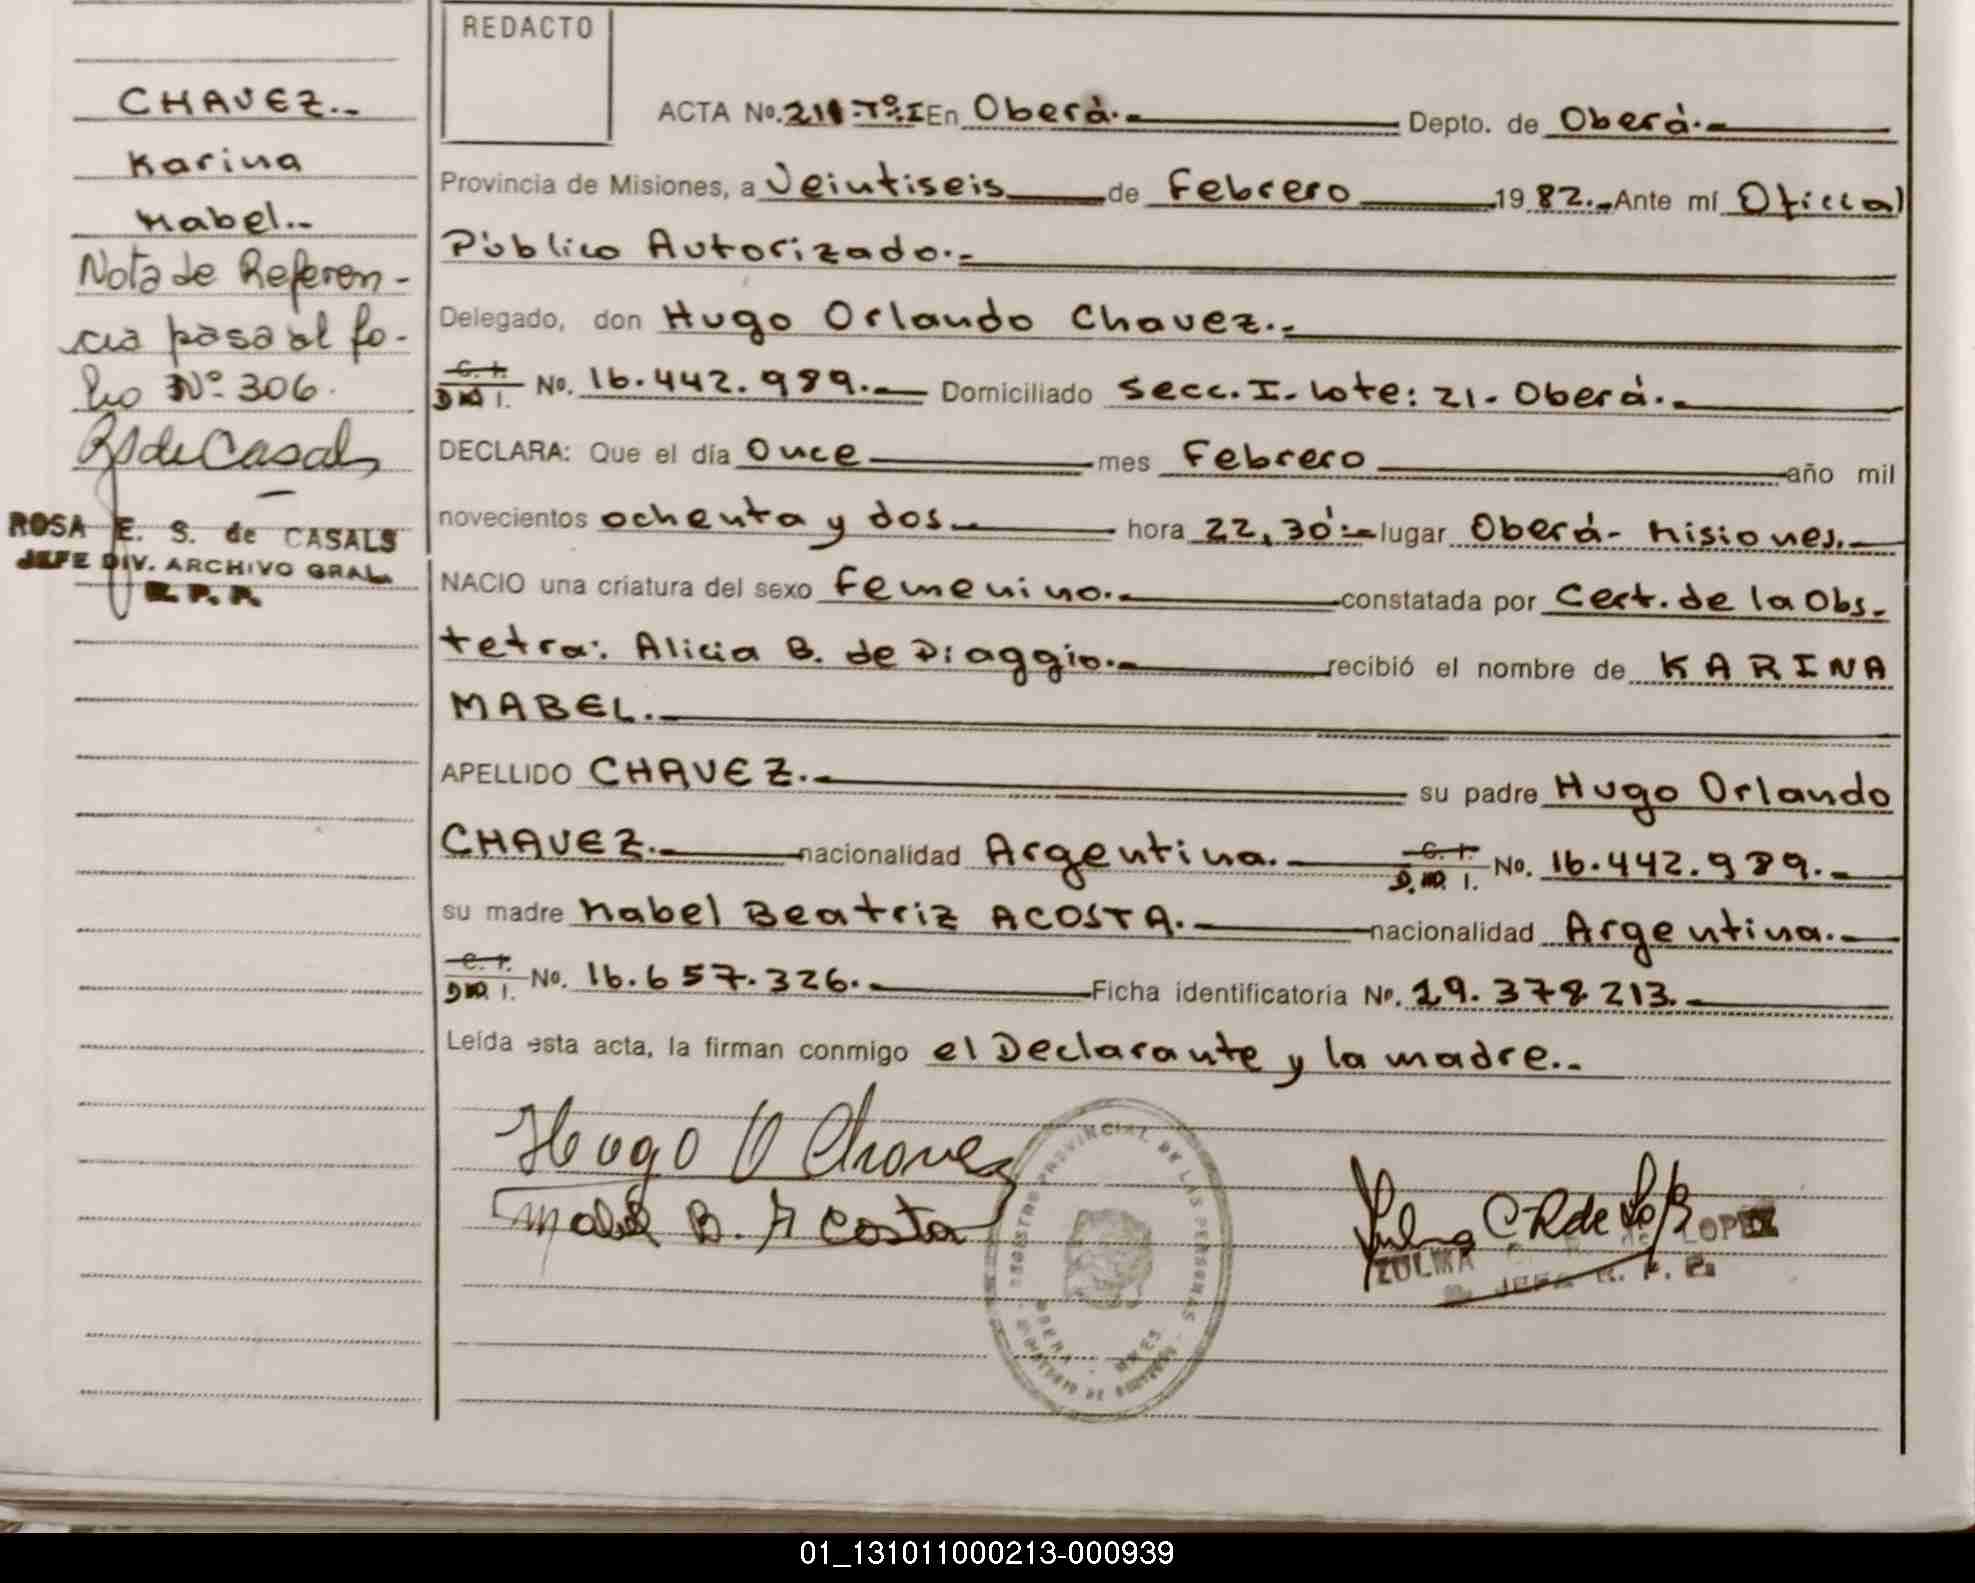 REDACTO
CHAVEZ.-
Karina
Mabel.-
Nota de Referen-
cia pasa al fo-
lio Nº 306.
RSdeCasals
ROSA E. S. de CASALS
JEFE DIV. ARCHIVO GRAL.
R. P. P.
ACTA No. 211-Tº:I En Oberá.- Depto. de Oberá.-
Provincia de Misiones, a Veintiseis de Febrero 1982.- Ante mí Oficial
Público Autorizado.-
Delegado, don Hugo Orlando Chavez.-
C. I. D.N.I. No. 16.442.989.- Domiciliado Secc. I. Lote: 21- Oberá.-
DECLARA: Que el día Once mes Febrero año mil
novecientos ochenta y dos.- hora 22,30'.- lugar Oberá- Misiones.-
NACIO una criatura del sexo Femenino.- constatada por Cert. de la Obs-
tetra: Alicia B. de Diaggio.- recibió el nombre de KARINA
MABEL.-
APELLIDO CHAVEZ.- su padre Hugo Orlando
CHAVEZ.- nacionalidad Argentina.- C. I. D.N.I. No. 16.442.989.-
su madre Mabel Beatriz ACOSTA.- nacionalidad Argentina.-
C. I. D.N.I. No. 16.657.326.- Ficha identificatoria No. 29.378213.-
Leída esta acta, la firman conmigo el Declarante y la madre.-
Hugo O Chavez
Mabel B. Acosta
REGISTRO PROVINCIAL DE LAS PERSONAS
OBERA - MNES.
ZULMA C. R. de LOPEZ
JEFA R. P. P.
01_131011000213-000939